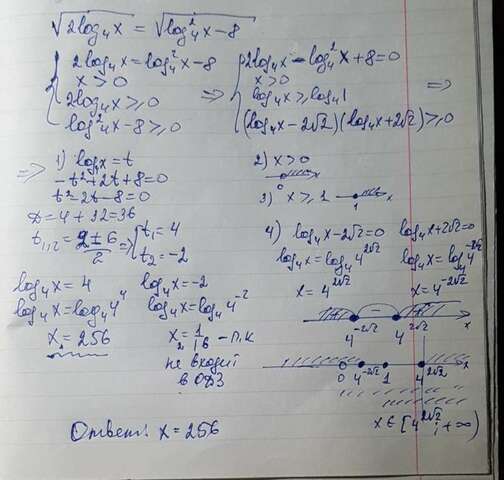 √2log₄x = √log₄²x-8
{ 2log₄x = log₄²x-8
x>0
2log₄x ≥ 0
log₄²x-8 ≥ 0
=> { 2log₄x - log₄²x+8=0
x>0
log₄x ≥ log₄1
(log₄x-2√2)(log₄x+2√2) ≥ 0 =>
=> 1) log₄x=t
-t²+2t+8=0
t²-2t-8=0
D=4+32=36
t₁,₂ = (2±6)/2 => [ t₁=4
t₂=-2
log₄x=4 log₄x=-2
log₄x=log₄4⁴ log₄x=log₄4⁻²
x₁=256 x₂=1/16 - П.К
не входит
в ОДЗ
2) x>0
0 x
3) x ≥ 1
1 x
4) log₄x-2√2=0 log₄x+2√2=0
log₄x=log₄4^(2√2) log₄x=log₄4^(-2√2)
x=4^(2√2) x=4^(-2√2)
+ - +
4^(-2√2) 4^(2√2) x
0 4^(-2√2) 1 4^(2√2) x
x∈[4^(2√2); +∞)
Ответ: x=256